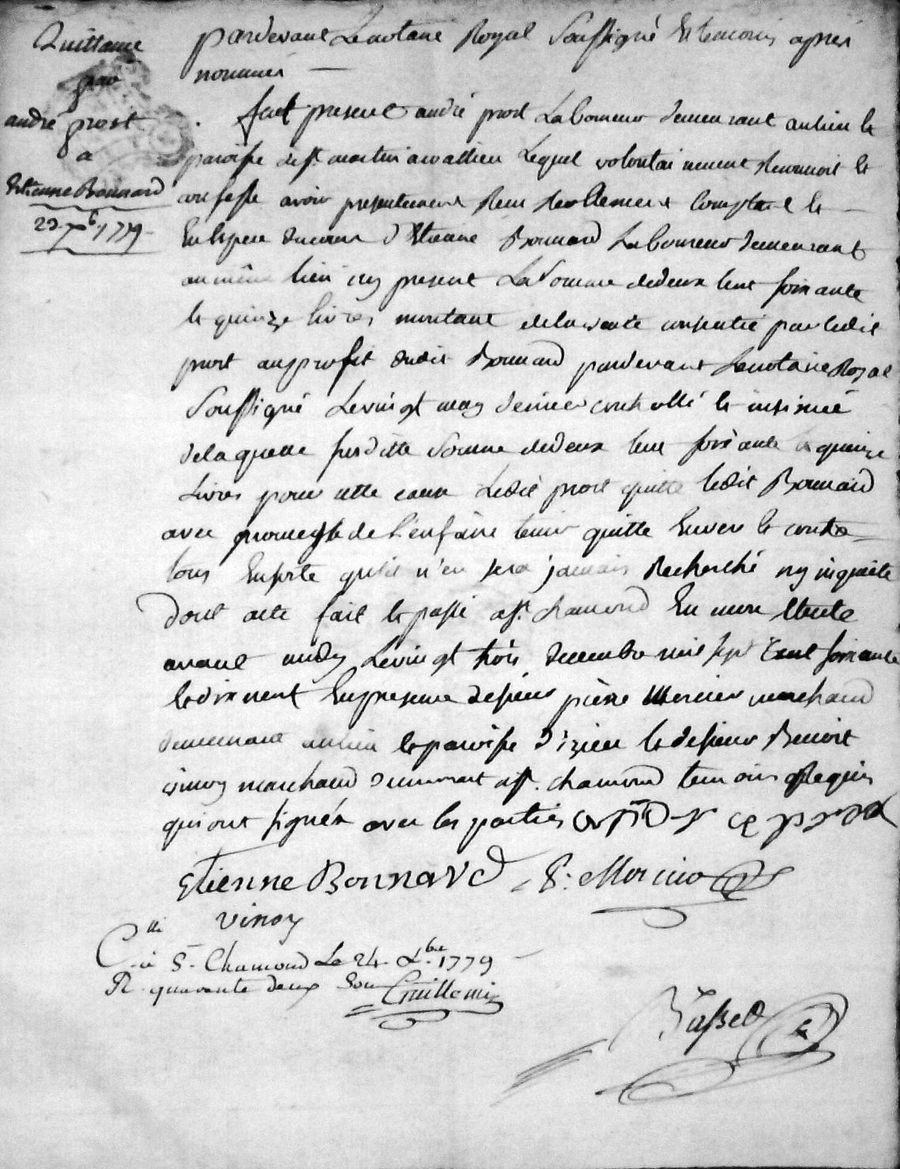 Quittance
par
andré prost
a
Estienne Bonnard
23 Xbre 1779
pardevant Le notaire Royal Soussigné Et temoins apres
nommés
fut present andré prost Laboureur demeurant au lieu et
paroisse de st martin Lequel volontairement Reconnoit et
confesse avoir presentement Receu Reellement Comptant et
En Espece de cours d'Etienne Bonnard Laboureur demeurant
au même lieu icy present La Somme de deux Cent soixante
et quinze livres montant de la vente consentie par ledit
prost au proffit dudit Bonnard pardevant Le notaire Royal
Soussigné Le vingt may dernier controllé et insinué
de laquelle susditte Somme de deux Cent soixante et quinze
Livres pour cette cause Ledit prost quitte ledit Bonnard
avec promesse de l'en faire tenir quitte Envers et contre
tous Ensorte qu'il n'en sera jamais Recherché ny inquieté
Dont acte fait et passé a st. chamond En mon Etude
avant midy Le vingt trois decembre mil sept Cent soixante
et dix neuf En presence de sieur pierre Mercier marchand
demeurant au lieu et paroisse d'izieu et de sieur Benoit
vinoy marchand demeurant a st. chamond temoins Requis
qui ont signés avec les parties
Etienne Bonnard P. Mercier
vinoy
C.lé à St. Chamond Le 24 Xbre 1779
R. quarante deux Sou Guillemin
Basset